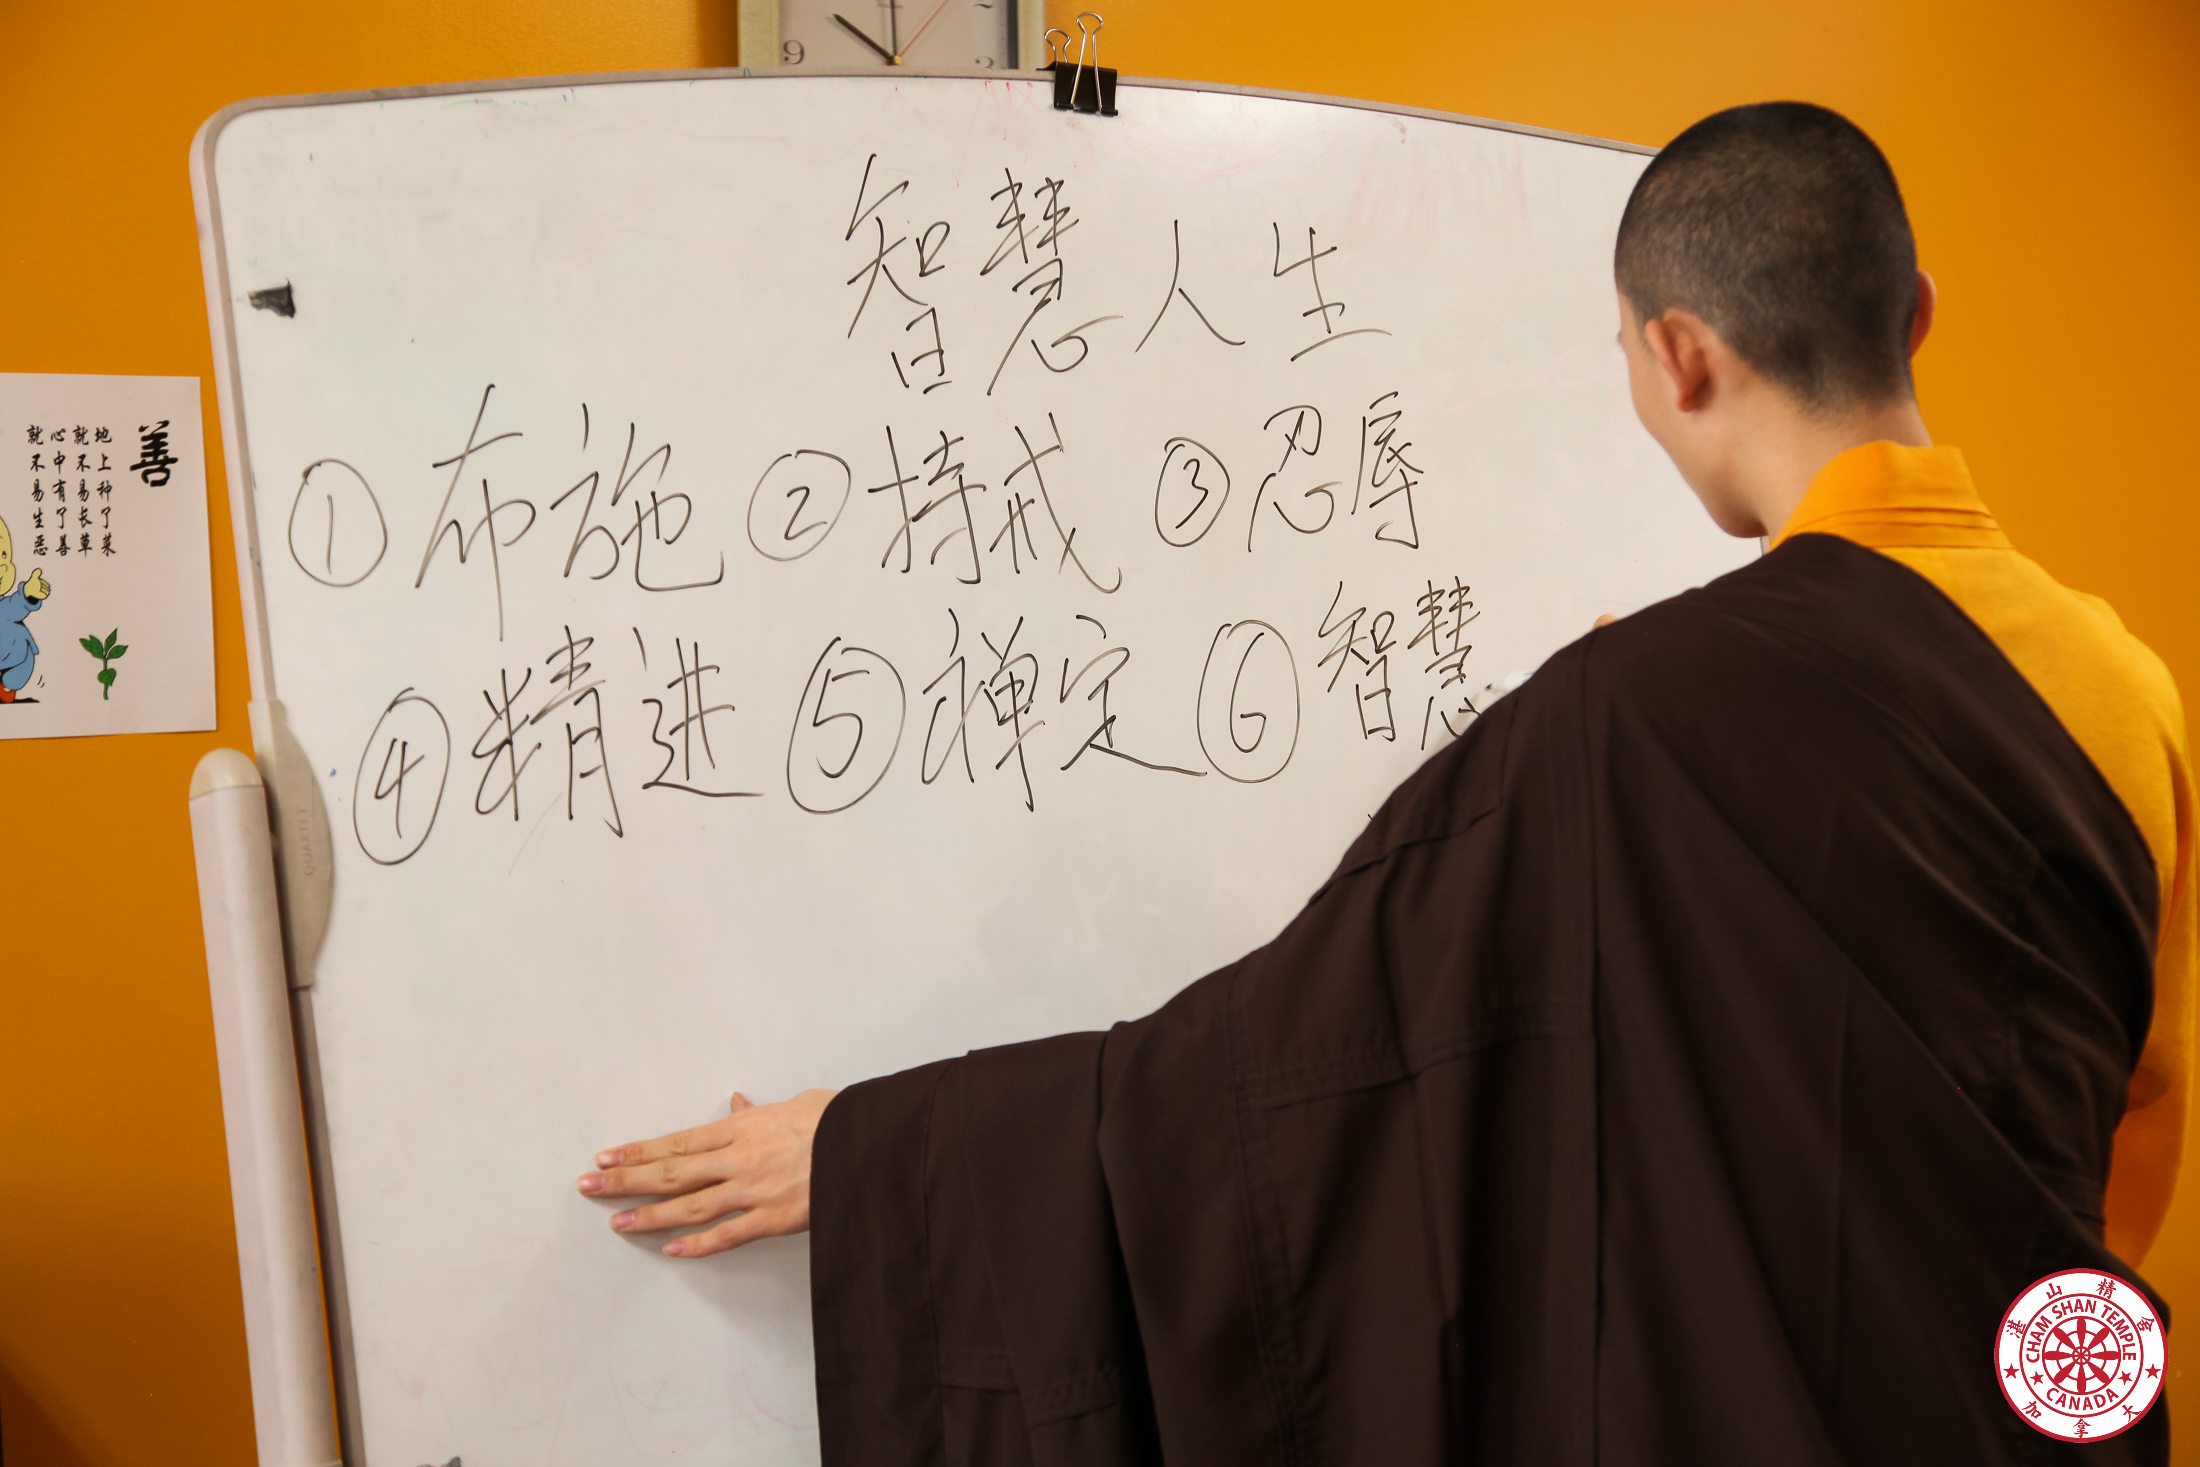 9 3
智慧人生
① 布施 ② 持戒 ③ 忍辱
④ 精进 ⑤ 禅定 ⑥ 智慧
善
地上种了菜
就不易长草
心中有了善
就不易生恶
湛山精舍
CHAM SHAN TEMPLE
CANADA
加拿大